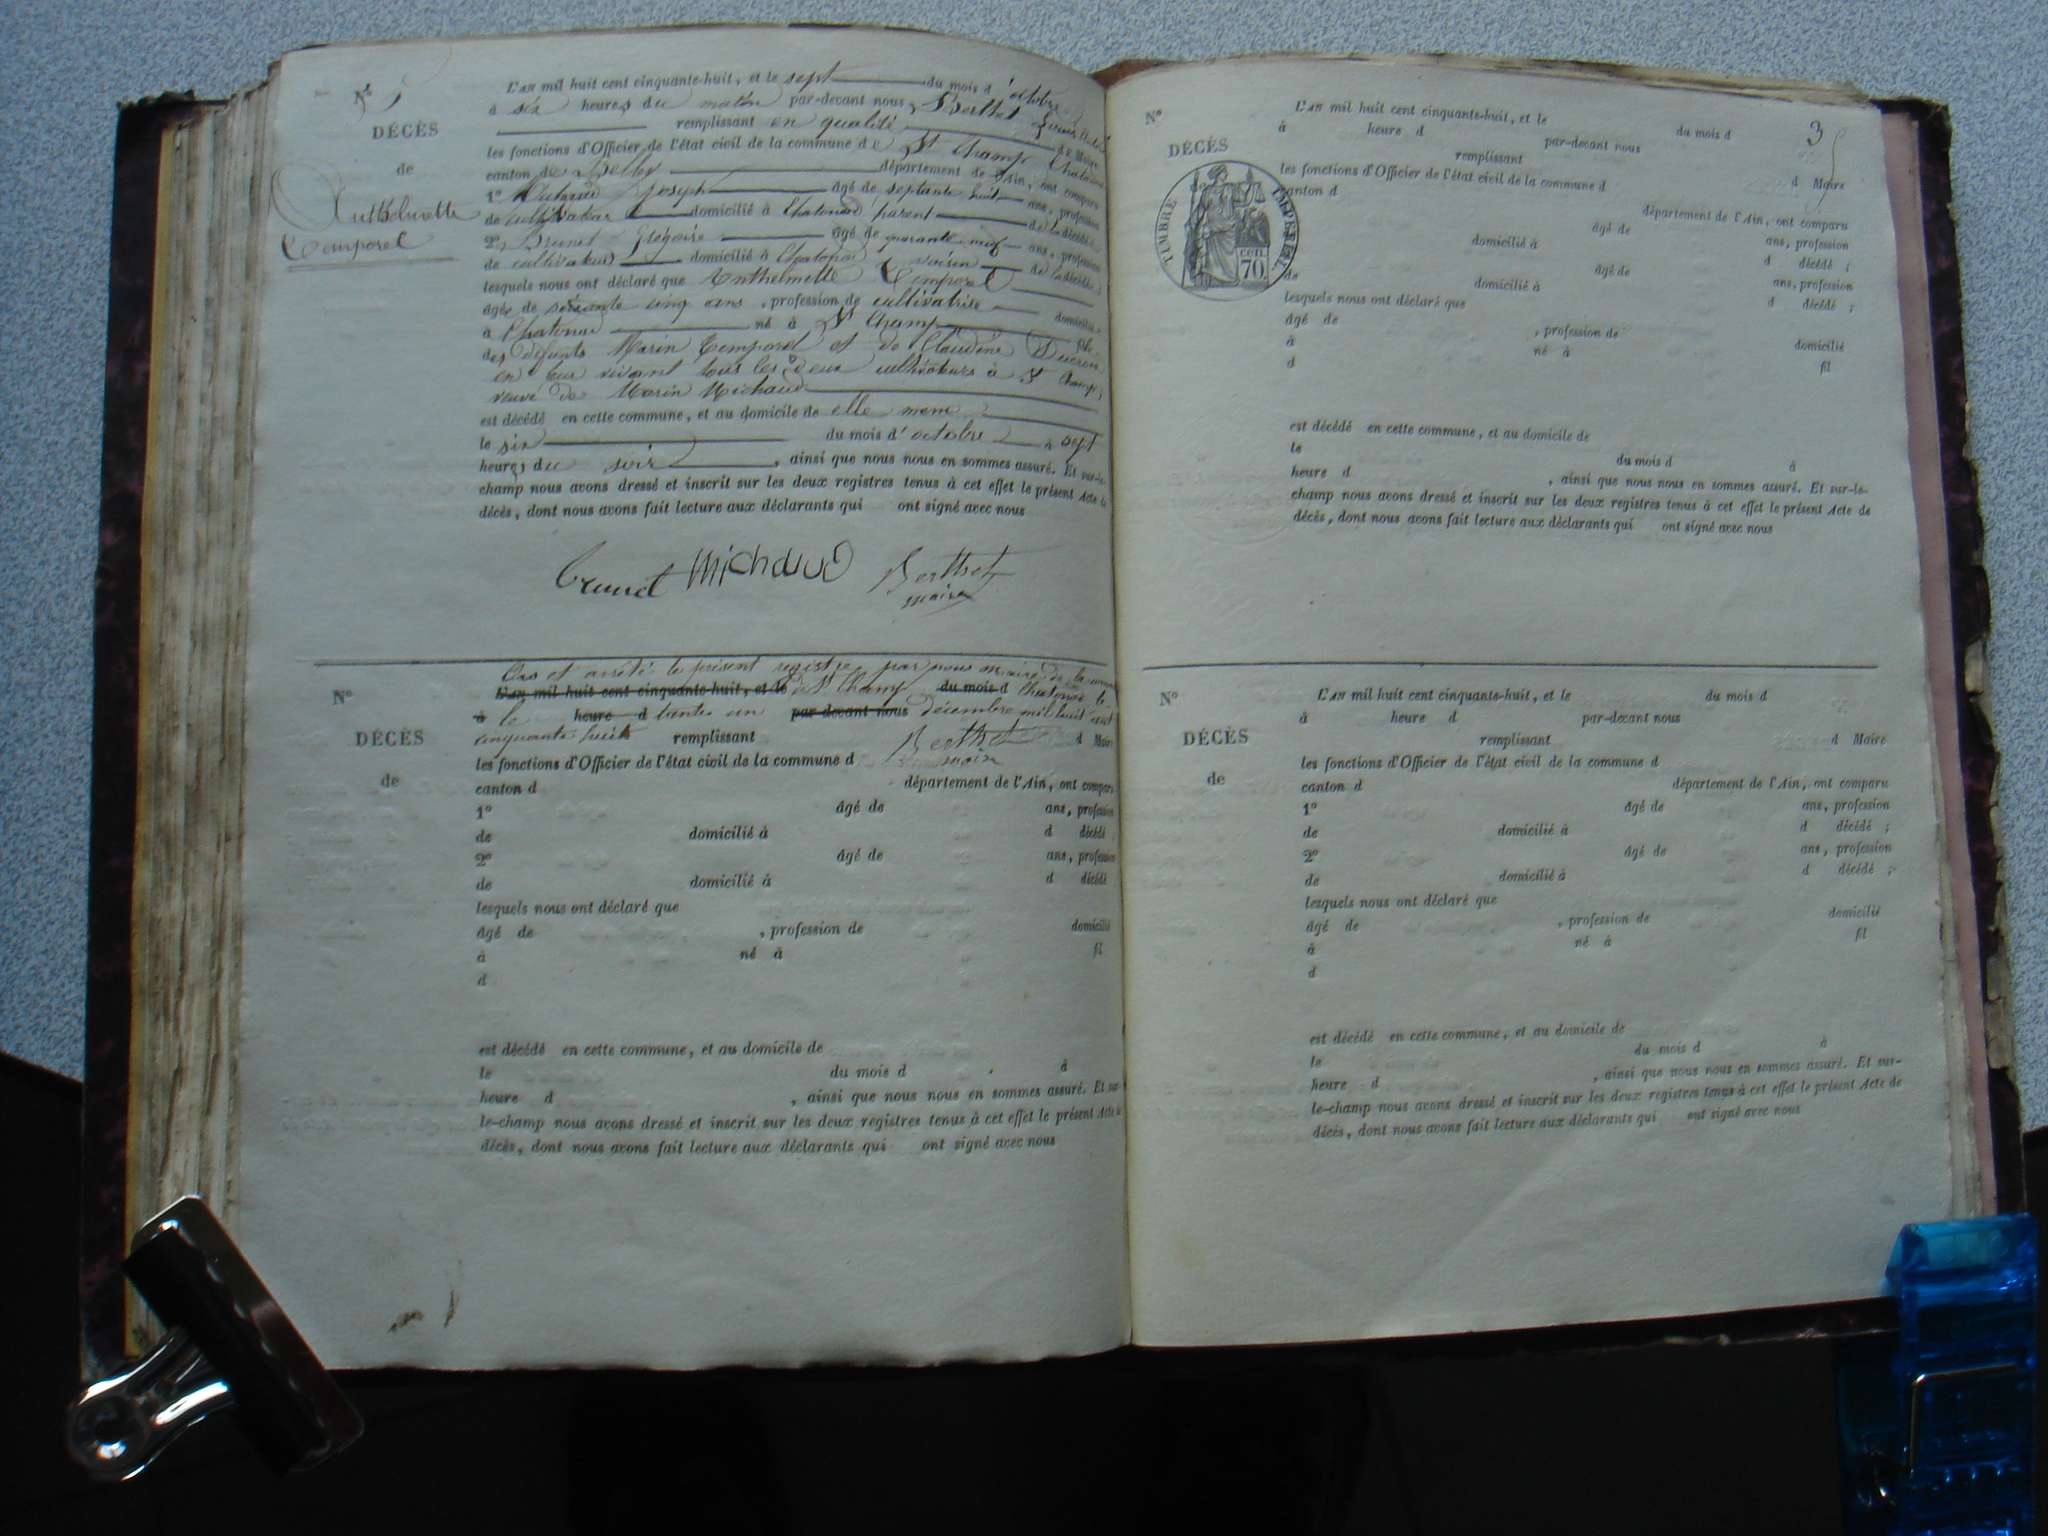 N° 5
DÉCÈS
de
Anthelmette
Temporel
L'AN mil huit cent cinquante-huit, et le sept du mois d'octobre
à six heures du matin par-devant nous Berthet Louis
remplissant en qualité de Maire
les fonctions d'Officier de l'état civil de la commune de St Champ Chatonod
canton de Belley département de l'Ain, ont comparu
1° Joseph âgé de septante huit ans, profession
de cultivateur domicilié à Chatonod parent de la décédée
2° Brunet Grégoire âgé de quarante neuf ans, profession
de cultivateur domicilié à Chatonod voisin de la décédée
lesquels nous ont déclaré que Anthelmette Temporel
âgée de soixante cinq ans, profession de cultivatrice domiciliée
à Chatonod né à St Champ fille
des défunts Marin Temporel et de Claudine
en leur vivant tous les deux cultivateurs à St Champ,
veuve de Marin Michaud
est décédé en cette commune, et au domicile de elle meme
le six du mois d'octobre à sept
heures du soir, ainsi que nous nous en sommes assuré. Et sur-le-
champ nous avons dressé et inscrit sur les deux registres tenus à cet effet le présent Acte de
décès, dont nous avons fait lecture aux déclarants qui ont signé avec nous
Brunet Michaud Berthet
maire
Clos et arrêté le présent registre par nous maire de la commune
N° L'AN mil huit cent cinquante-huit, et le de St Champ du mois d Chatonod le
à le heure d trente un par-devant nous décembre mil huit cent
DÉCÈS cinquante huit remplissant Berthet d Maire
les fonctions d'Officier de l'état civil de la commune d maire
de canton d département de l'Ain, ont comparu
1° âgé de ans, profession
de domicilié à d décédé
2° âgé de ans, profession
de domicilié à d décédé
lesquels nous ont déclaré que
âgé de , profession de domicilié
à né à fil
d
est décédé en cette commune, et au domicile de
le du mois d à
heure d , ainsi que nous nous en sommes assuré. Et sur-
le-champ nous avons dressé et inscrit sur les deux registres tenus à cet effet le présent Acte de
décès, dont nous avons fait lecture aux déclarants qui ont signé avec nous
3
N° L'AN mil huit cent cinquante-huit, et le du mois d
à heure d par-devant nous
DÉCÈS remplissant d Maire
les fonctions d'Officier de l'état civil de la commune d
TIMBRE IMPÉRIAL
cen.
70
canton d département de l'Ain, ont comparu
âgé de ans, profession
domicilié à d décédé ;
âgé de ans, profession
de domicilié à d décédé ;
lesquels nous ont déclaré que
âgé de , profession de domicilié
à né à fil
d
est décédé en cette commune, et au domicile de
le du mois d à
heure d , ainsi que nous nous en sommes assuré. Et sur-le-
champ nous avons dressé et inscrit sur les deux registres tenus à cet effet le présent Acte de
décès, dont nous avons fait lecture aux déclarants qui ont signé avec nous
N° L'AN mil huit cent cinquante-huit, et le du mois d
à heure d par-devant nous
DÉCÈS remplissant d Maire
les fonctions d'Officier de l'état civil de la commune d
de canton d département de l'Ain, ont comparu
1° âgé de ans, profession
de domicilié à d décédé ;
2° âgé de ans, profession
de domicilié à d décédé ;
lesquels nous ont déclaré que
âgé de , profession de domicilié
à né à fil
d
est décédé en cette commune, et au domicile de
le du mois d à
heure d , ainsi que nous nous en sommes assuré. Et sur-
le-champ nous avons dressé et inscrit sur les deux registres tenus à cet effet le présent Acte de
décès, dont nous avons fait lecture aux déclarants qui ont signé avec nous